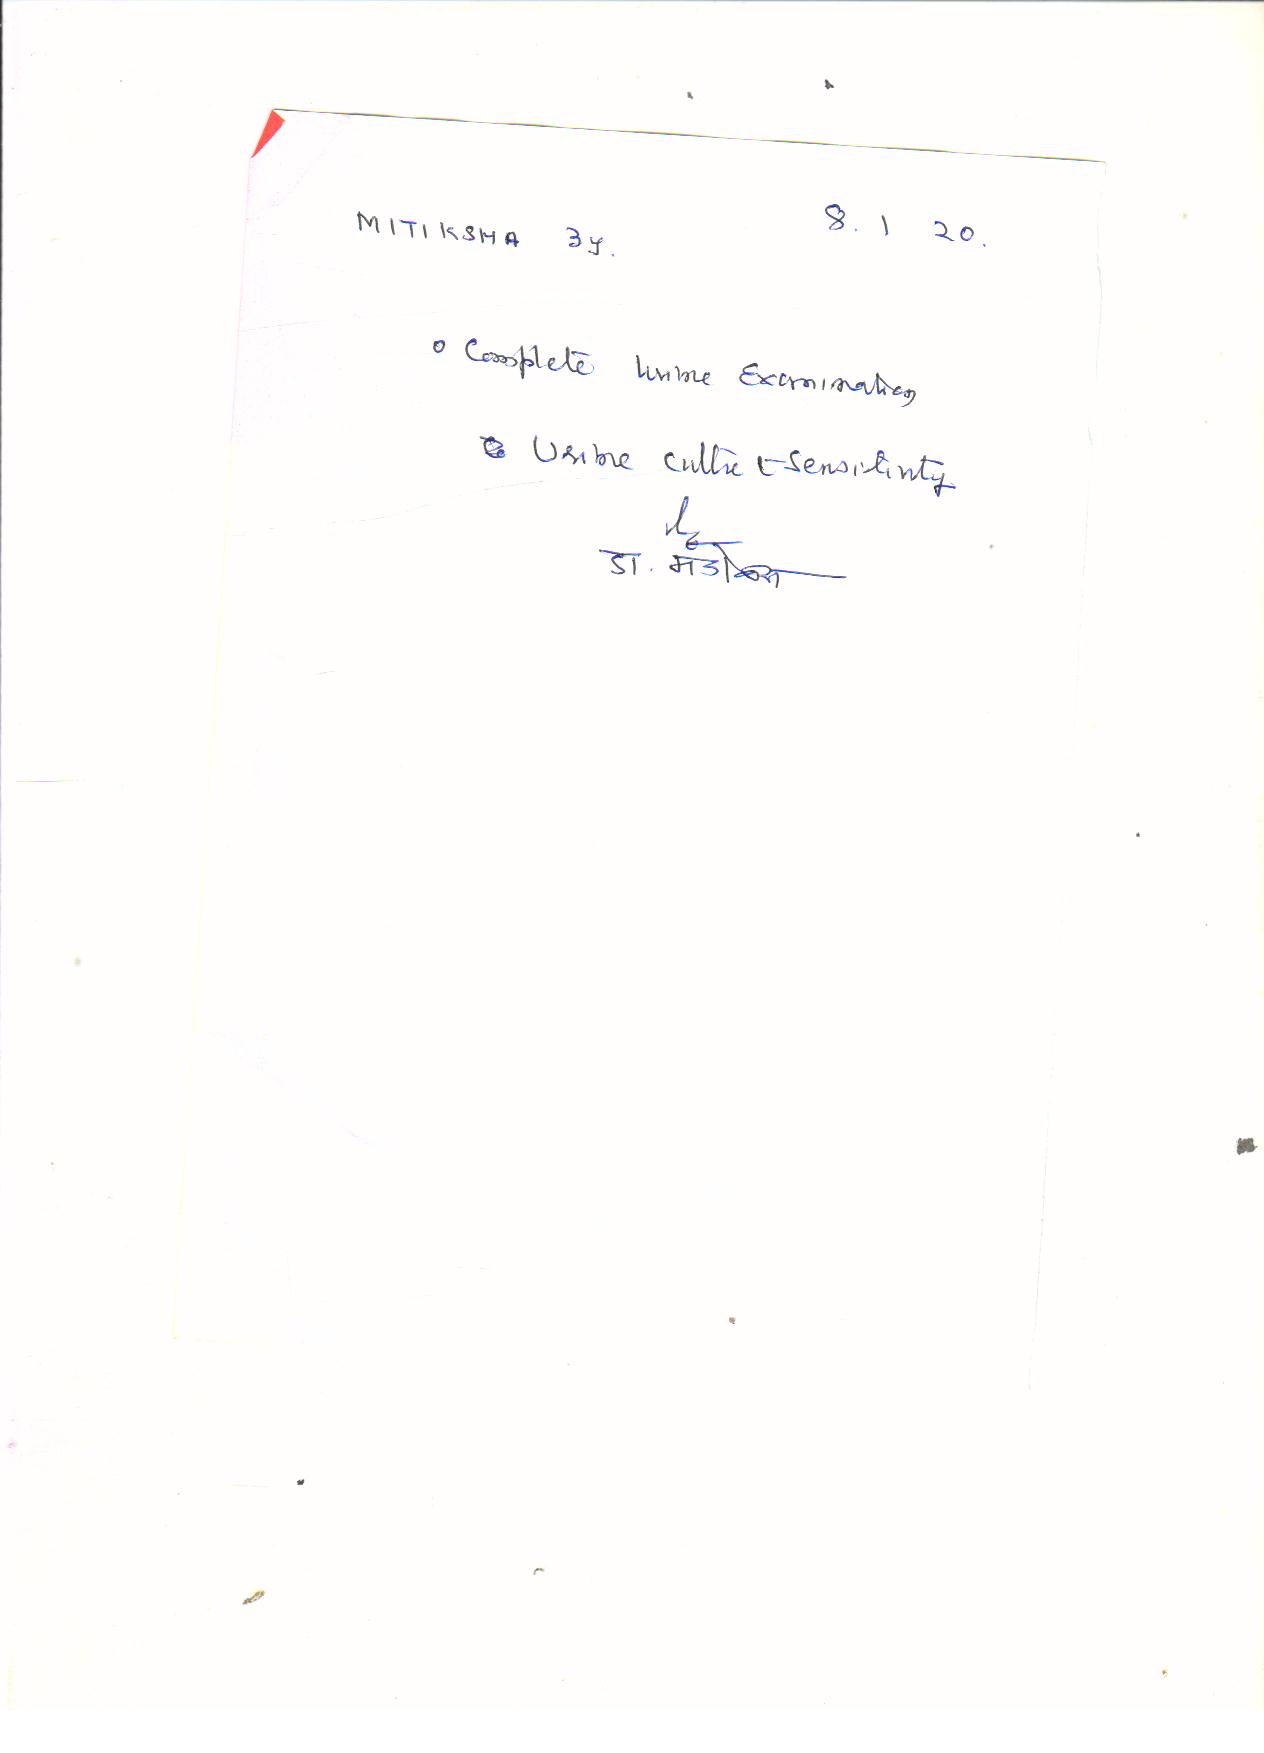 MITIKSHA 3y. 8. 1 20.
Complete Urine Examination
Urine Cultre & Sensitivity
डा.